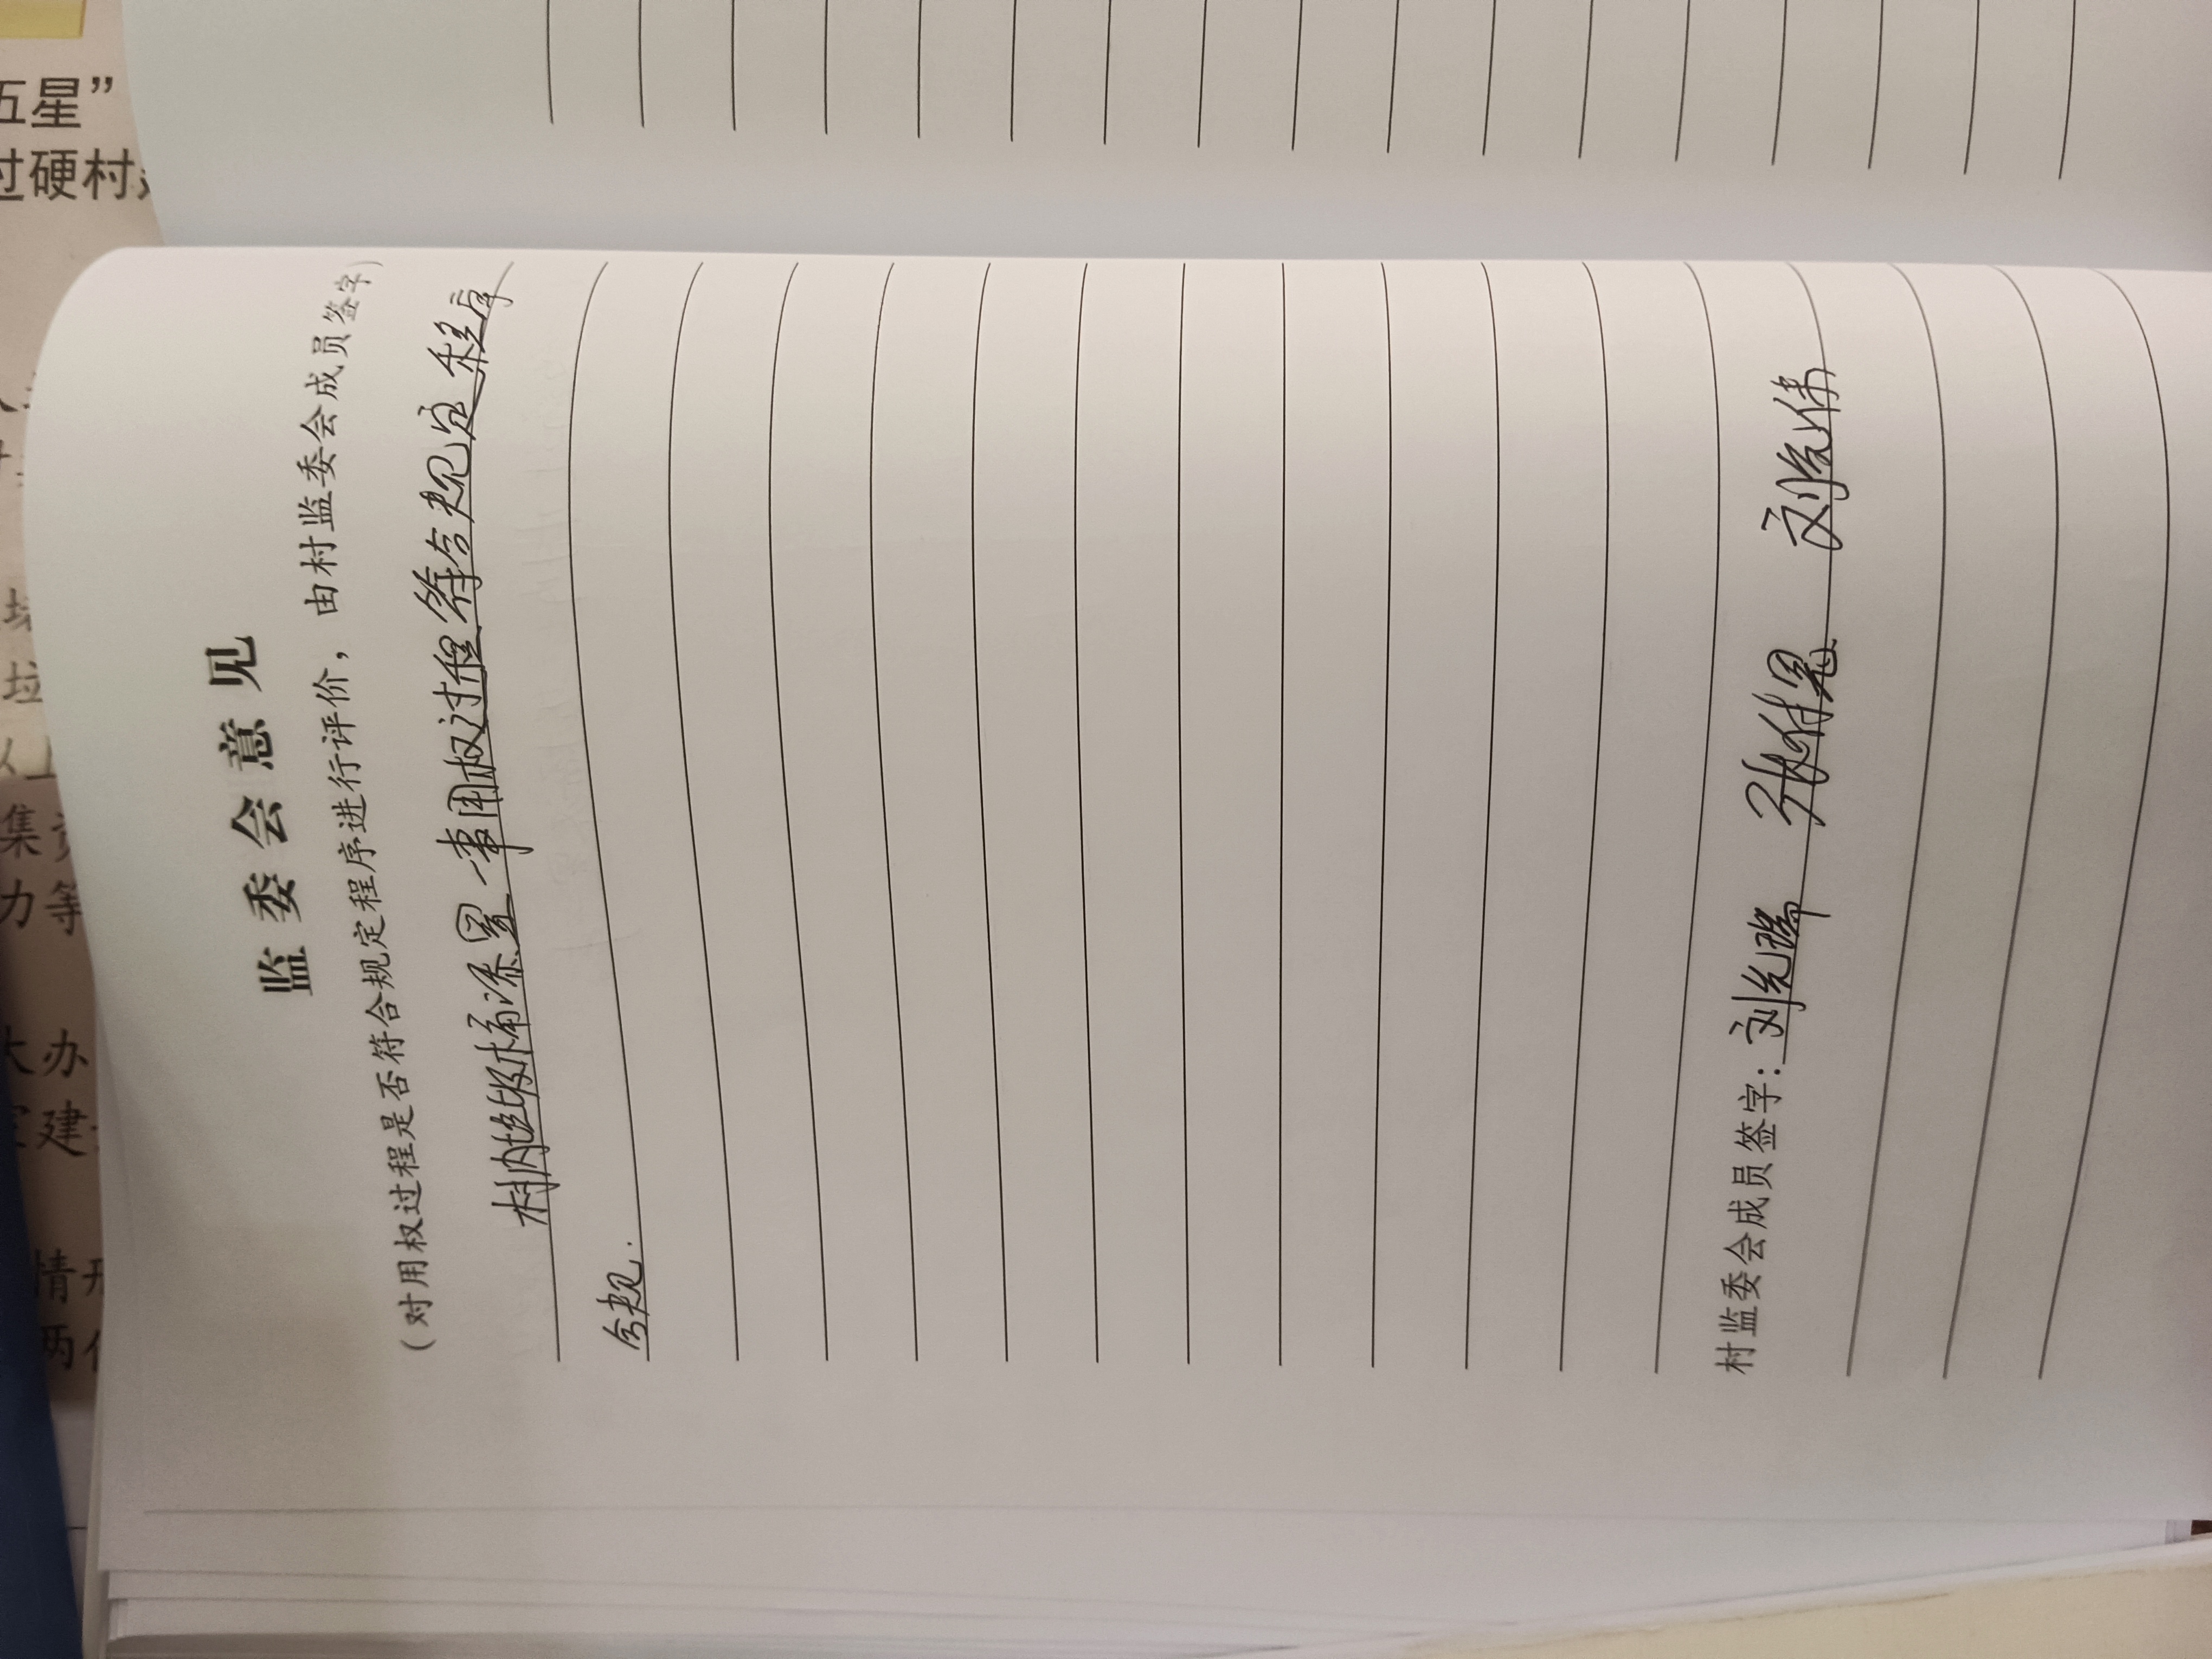 监委会意见
(对用权过程是否符合规定程序进行评价，由村监委会成员签字)
村内垃圾桶添置一事用权过程符合规定程序
合规.
村监委会成员签字: 刘先瑞
五星”
过硬村
垃
集资
力等
大办
建
情形